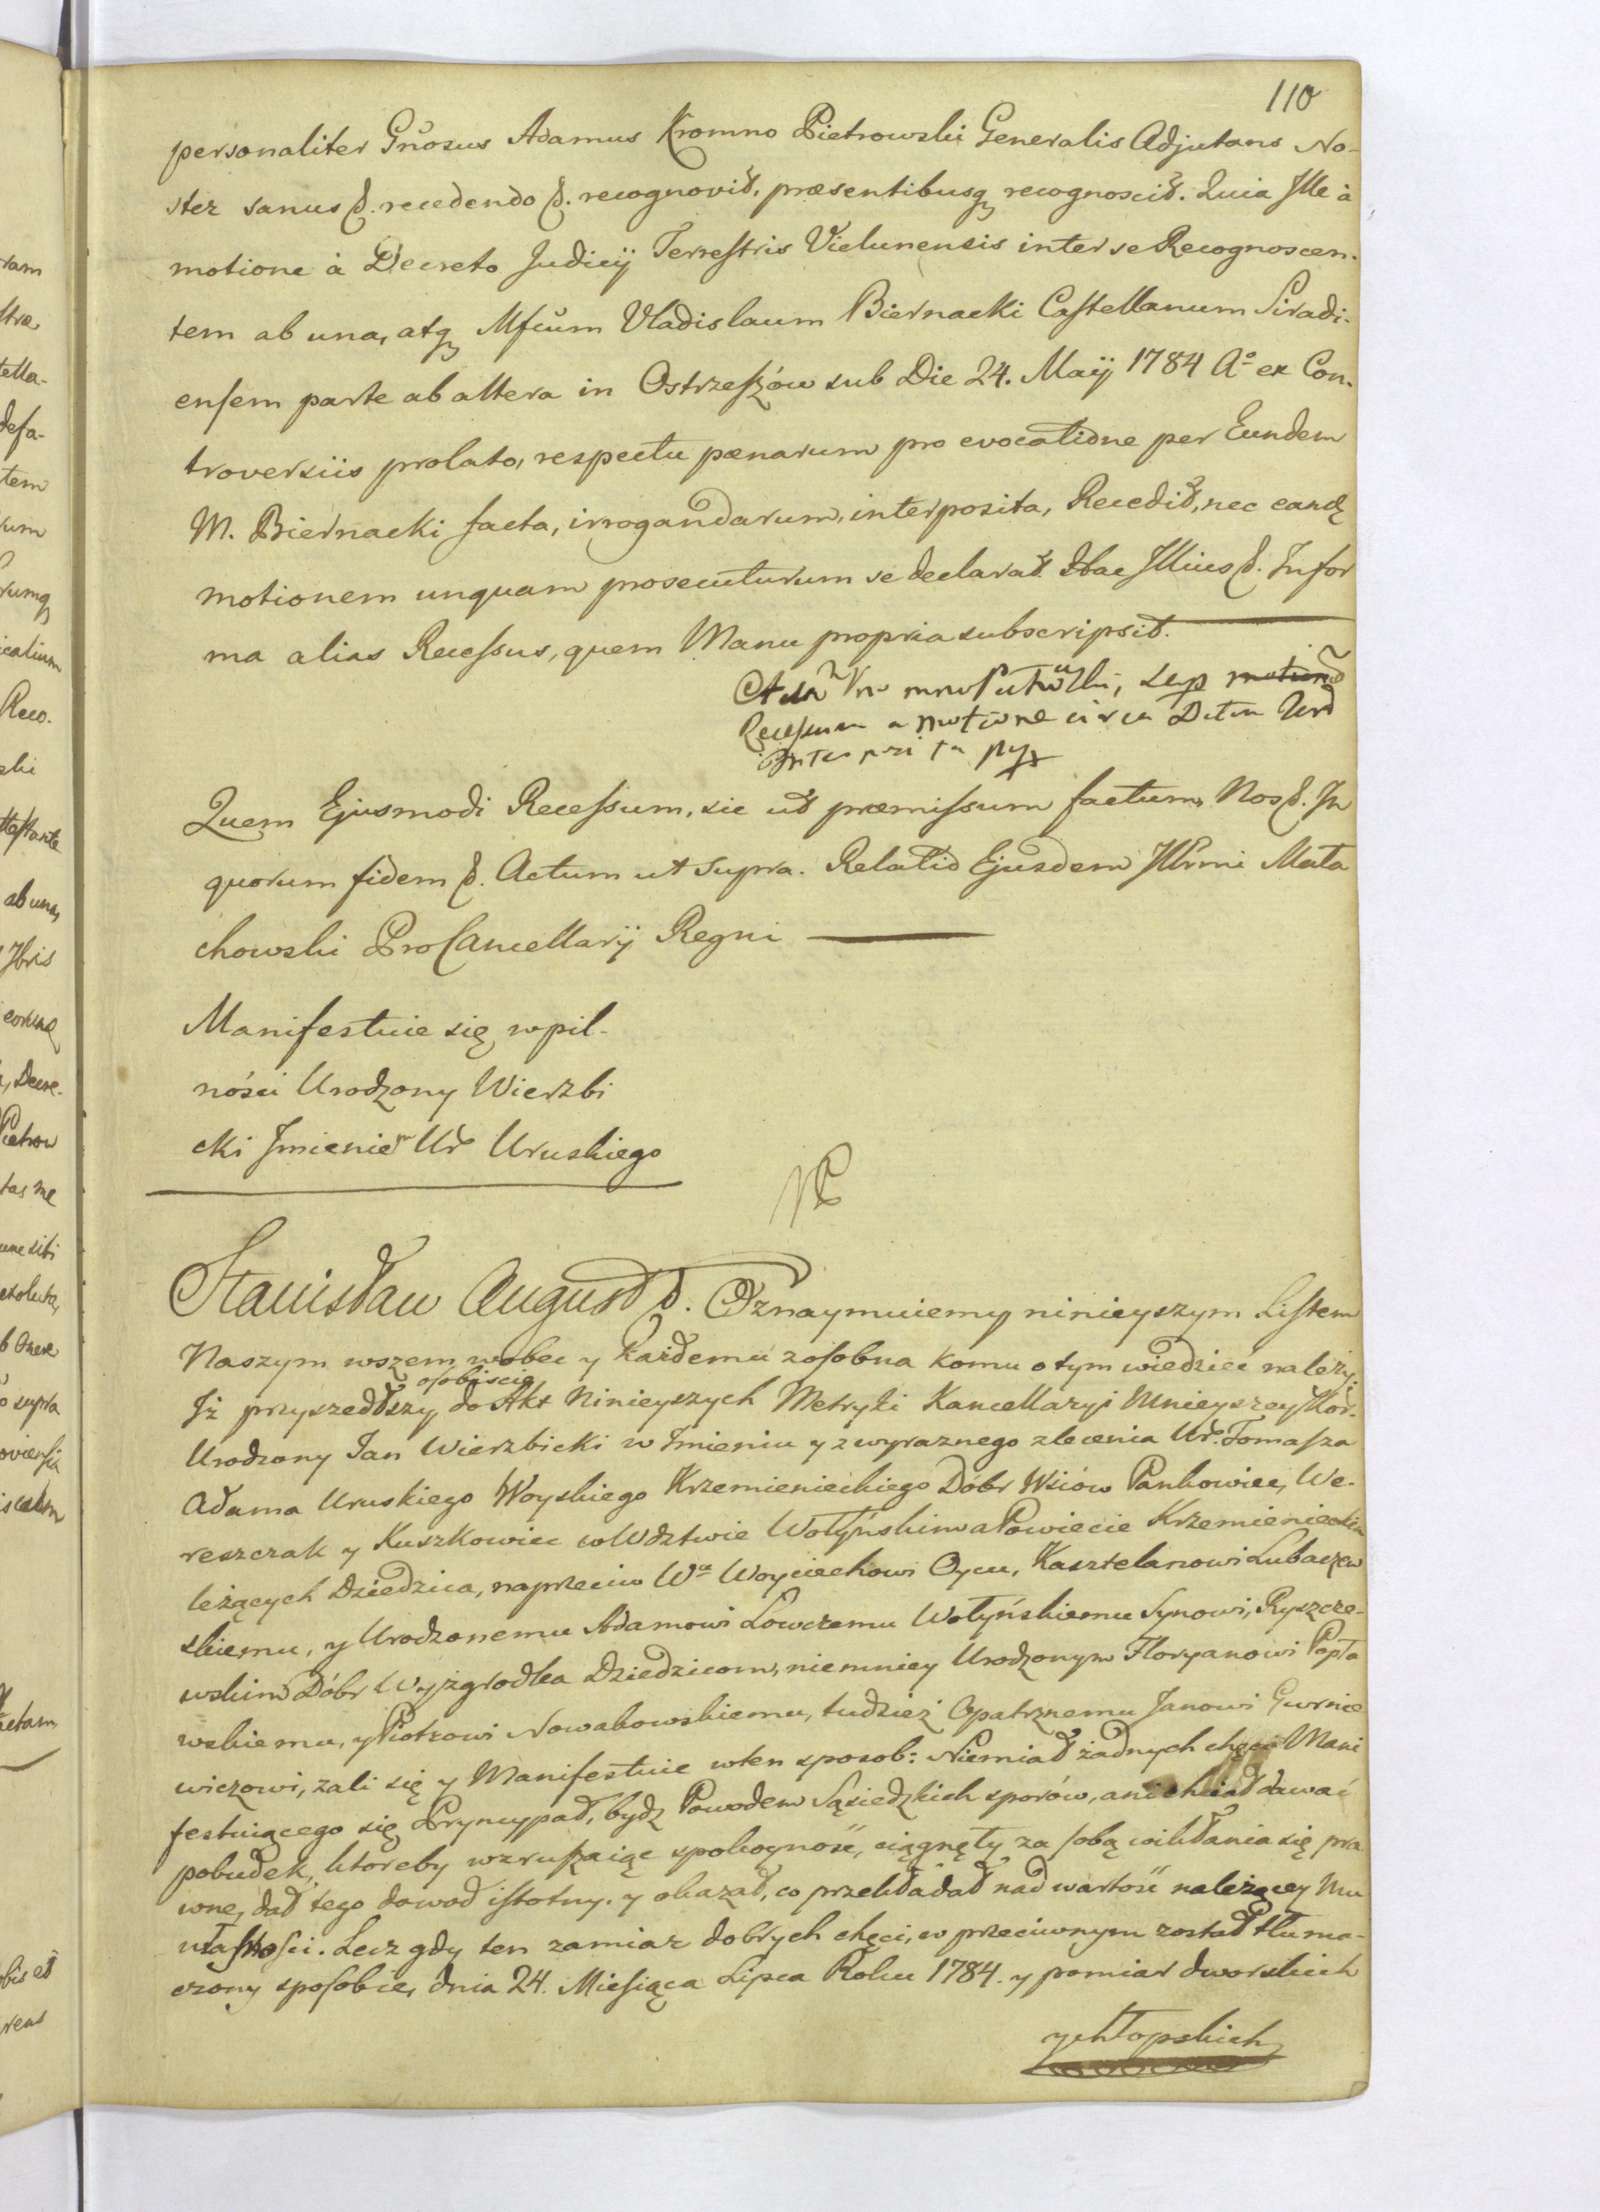 110
personaliter Gn̄osus Adamus Kromno Pietrowski Generalis Adjutans No-
ster sanus &. recedendo &. recognovit, præsentibusq recognoscit. Quia Ille à
motione à Decreto Judicij Terrestris Vielunensis inter se Recognoscen-
tem ab una, atq Mfcum Vladislaum Biernacki Castellanum Siradi-
ensem parte ab altera in Ostrzeszów sub Die 24. Maij 1784 Aº ex Con-
troversiis prolato, respectu pœnarum pro evocatione per Eundem
M. Biernacki facta, irrogandarum, interposita, Recedit, nec eandę
motionem unquam prosecuturum se declarat. Hac Illius &. In for
ma alias Recessus, quem Manu propria subscripsit.
Recessum a motione circa
Quem Ejusmodi Recessum, sic ut præmissum factum, Nos &. In
quorum fidem &. Actum ut supra. Relatio Ejusdem Illrmi Mała
chowski ProCancellarij Regni
Manifestuie się w pil-
ności Urodzony Wierzbi
cki Jmieniem Ur Uruskiego
Stanisław August &. Oznaymuiemy ninieyszym Listem
Naszym wszem wobec y każdemu zosobna komu o tym wiedzieć należy:
Jż przyszedłszy osobiście do Akt Ninieyszych Metryki Kancellaryi Mnieyszey Kor.
Urodzony Jan Wierzbicki w Jmieniu y z wyraznego zlecenia Ur. Tomasza
Adama Uruskiego Woyskiego Krzemienieckiego Dóbr Wsiów Pankowiec, We-
reszczak y Kuszkowiec w Wdztwie Wołyńskim a Powiecie Krzemienieckim
leżących Dziedzica, naprzeciw Wu Woyciechowi Oycu, Kasztelanowi Lubaczew
skiemu, y Urodzonemu Adamowi Łowczemu Wołyńskiemu Synowi, Ryszcze-
wskim Dóbr Wyżgrodka Dziedzicom, niemniey Urodzonym Floryanowi Popła
wskiemu, y Piotrowi Nowakowskiemu, tudzież Opatrznemu Janowi Gurnie
wiczowi, żali się y Manifestuie w ten sposob: Niemiał żadnych chęci Mani
festuiącego się Pryncypał, bydź Powodem Sąsiedzkich sporów, ani chciał dawać
pobudek, ktoreby wzruszaiąc spokoyność, ciągnęły za sobą wikłania się pra
wne, dał tego dowod istotny y okazał, co przekładał nad wartość należącey Mu
własności. Lecz gdy ten zamiar dobrych chęci, w przeciwnym został tłuma-
czony sposobie, dnia 24. Miesiąca Lipca Roku 1784. y pomiar dworskich
y chłopskich